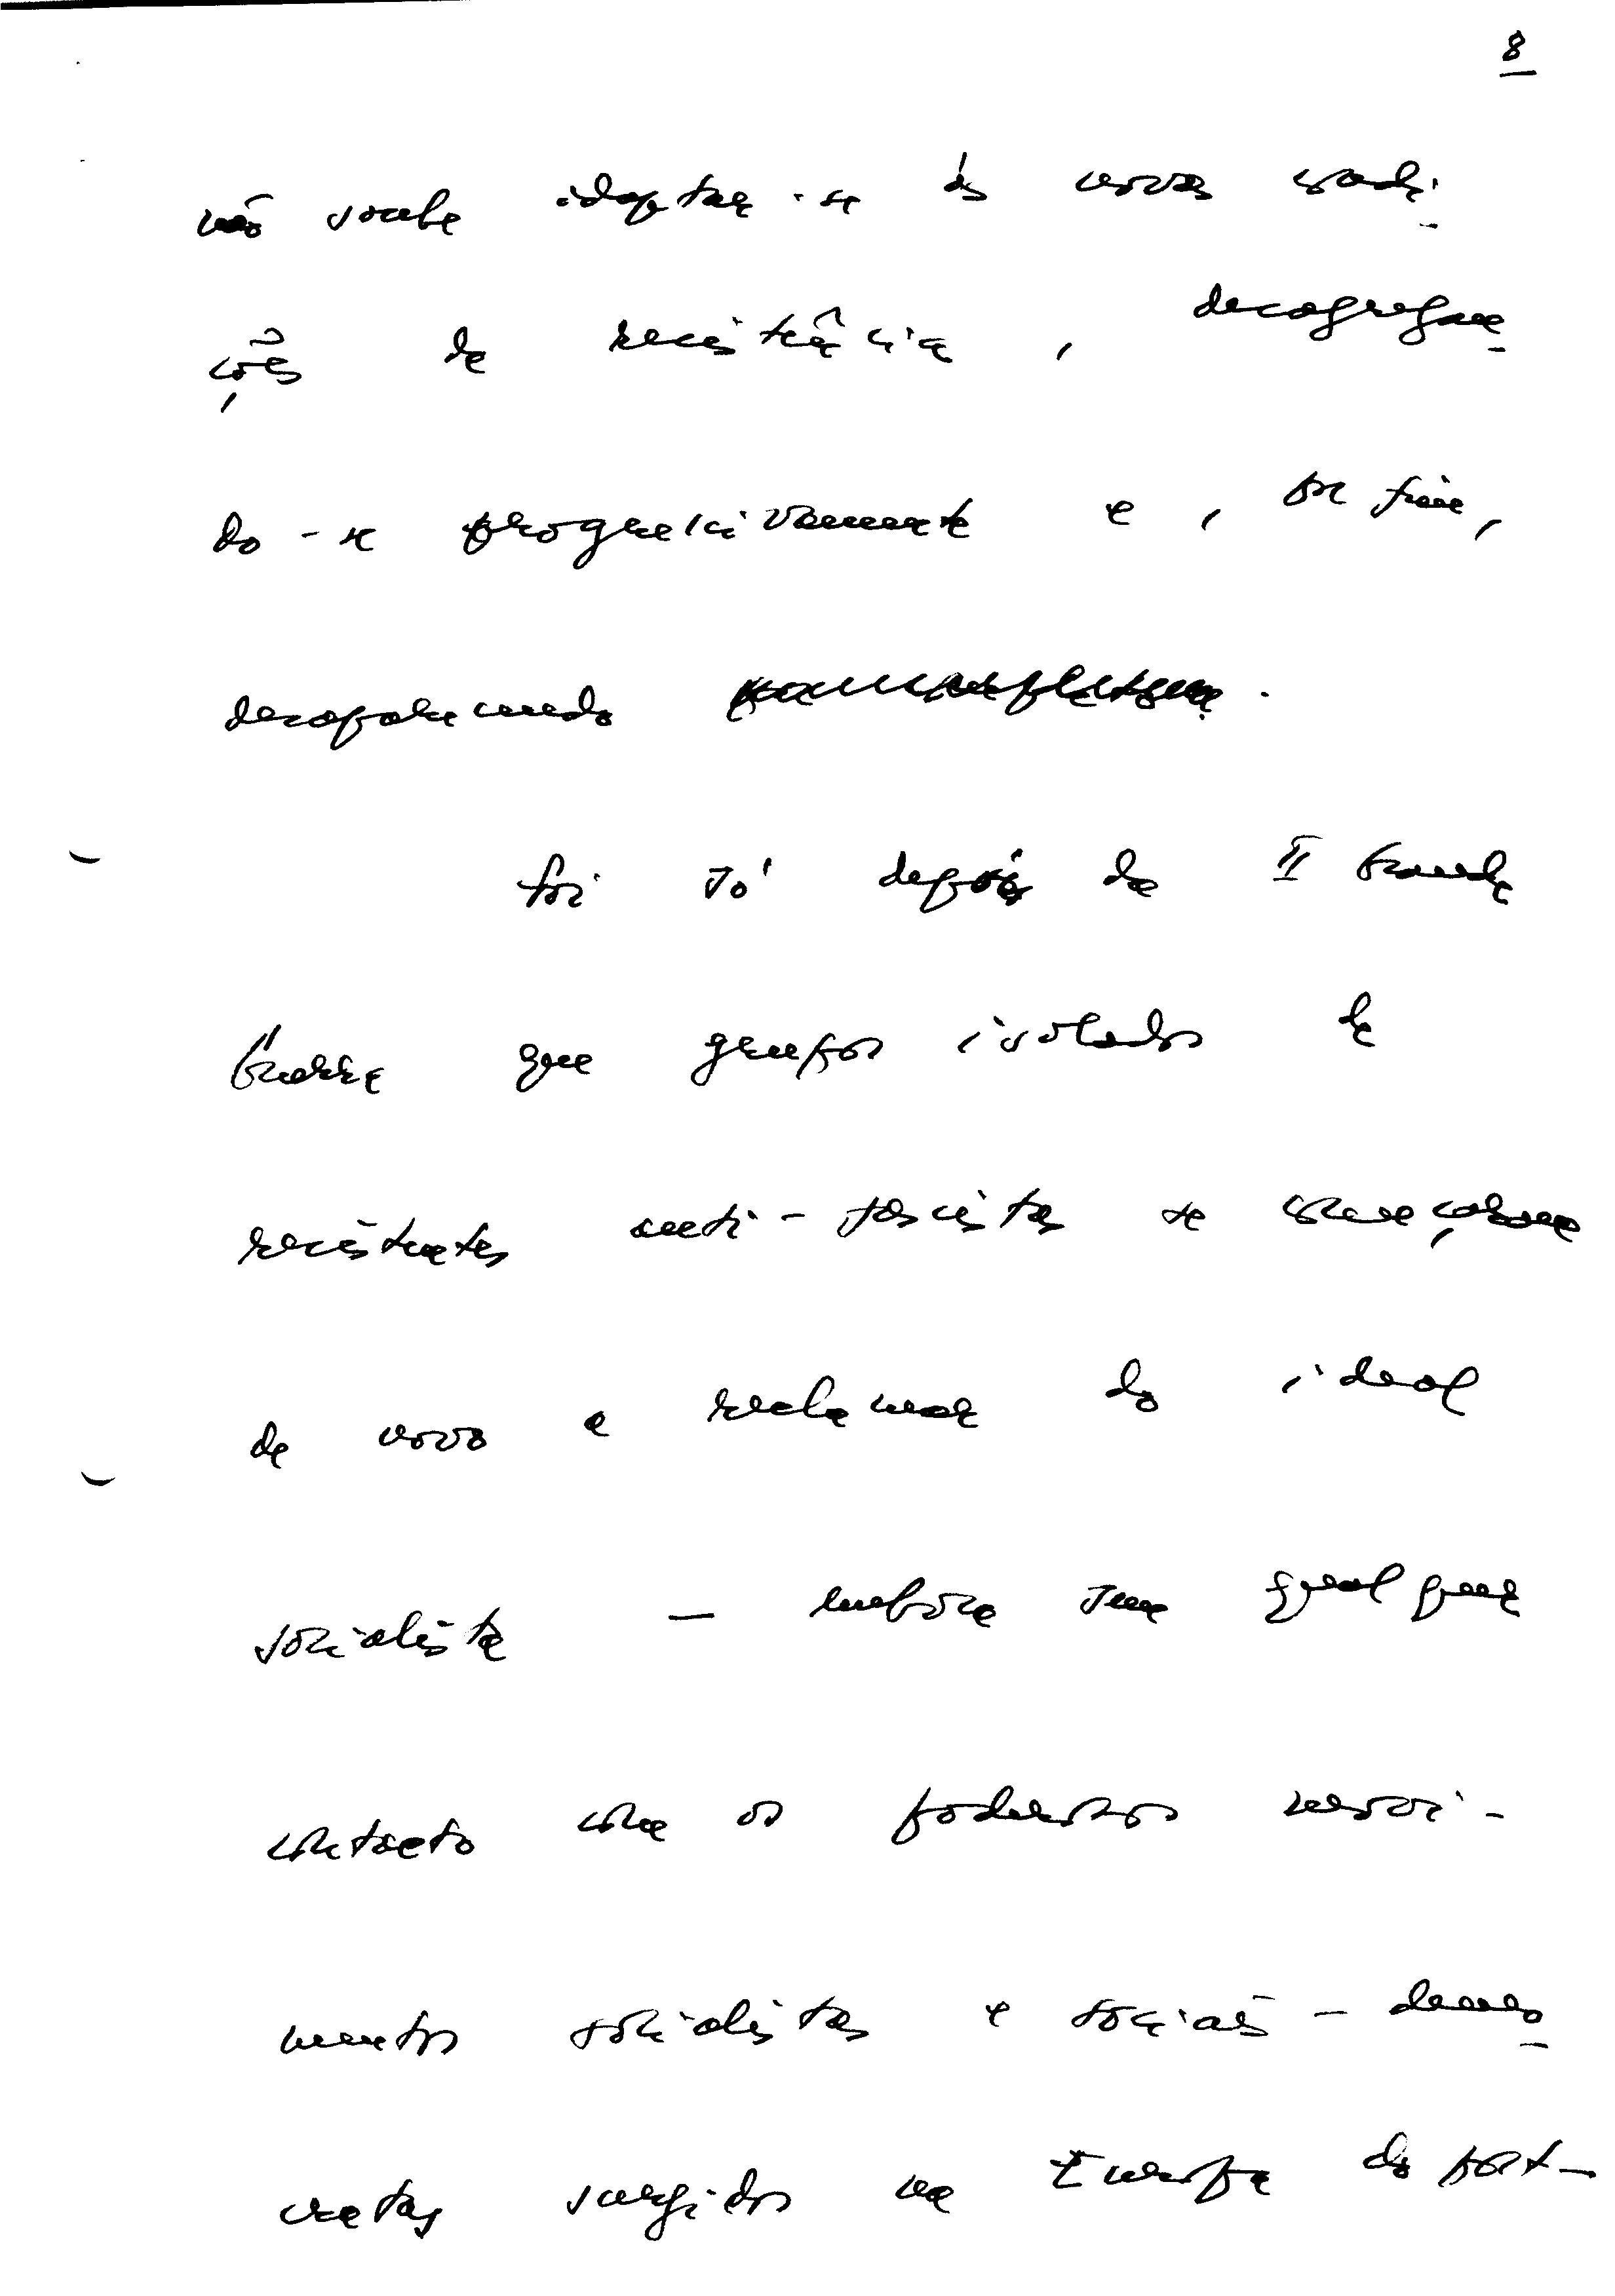 8
não soube adaptar-se às novas condi-
ções de resistência, desagregan-
do-se progressivamente e, por fim,
desaparecendo.
Foi só depois da II Grande
Guerra que grupos isolados de
resistentes anti-fascistas se começaram
de novo a reclamar do ideal
socialista — embora sem qualquer
contacto com os poderosos movi-
mentos socialistas e sociais-demo-
cratas surgidos na Europa do post-